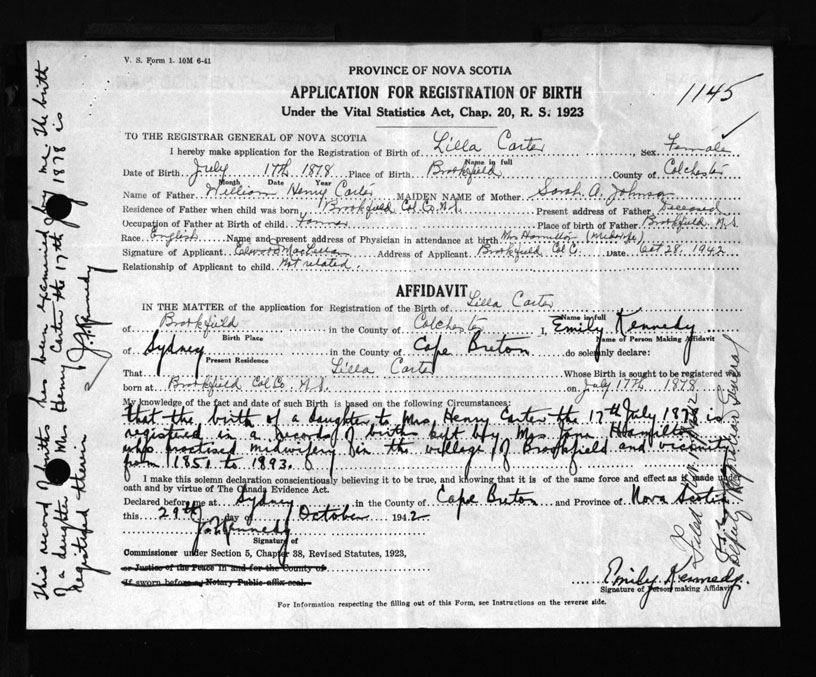 V. S. Form 1. 10M 6-41
PROVINCE OF NOVA SCOTIA
APPLICATION FOR REGISTRATION OF BIRTH
1145
Under the Vital Statistics Act, Chap. 20, R. S. 1923
TO THE REGISTRAR GENERAL OF NOVA SCOTIA
I hereby make application for the Registration of Birth of Lilla Carter Sex Female
Name in full
Date of Birth July 17th 1878 Place of Birth Brookfield County of Colchester
Month Date Year
Name of Father William Henry Carter MAIDEN NAME of Mother Sarah A. Johnson
Residence of Father when child was born Brookfield Col. Co. N.S. Present address of Father Deceased
Occupation of Father at Birth of child Farmer Place of birth of Father Brookfield N.S.
Race English Name and present address of Physician in attendance at birth Mrs Hamilton (Midwife)
Signature of Applicant Address of Applicant Brookfield Col C. Date Oct 28, 1942
Relationship of Applicant to child Not related.
AFFIDAVIT
IN THE MATTER of the application for Registration of the Birth of Lilla Carter
Name in full
of Brookfield in the County of Colchester I, Emily Kennedy
Birth Place Name of Person Making Affidavit
of Sydney in the County of Cape Breton do solemnly declare:
Present Residence
That Lilla Carter Whose Birth is sought to be registered was
born at Brookfield Col. Co. N.S. on July 17th 1878
My knowledge of the fact and date of such Birth is based on the following Circumstances:
that the birth of a daughter to Mrs Henry Carter the 17th July 1878 is
registered in a record of births kept by Mrs Tom Hamilton
who practised midwifery in the village of Brookfield and vicinity
from 1851 to 1893.
I make this solemn declaration conscientiously believing it to be true, and knowing that it is of the same force and effect as if made under
oath and by virtue of The Canada Evidence Act.
Declared before me at Sydney in the County of Cape Breton and Province of Nova Scotia
this 29th day of October 1942
J. F. Kennedy
Signature of
Commissioner under Section 5, Chapter 38, Revised Statutes, 1923,
or Justice of the Peace in and for the County of
If sworn before a Notary Public affix seal.
Emily Kennedy.
Signature of Person making Affidavit
For Information respecting the filling out of this Form, see Instructions on the reverse side.
This record of births has been examined by me. The birth
of a daughter to Mrs Henry Carter the 17th July 1878 is
registered therein
J. F. Kennedy
Deputy Registrar General